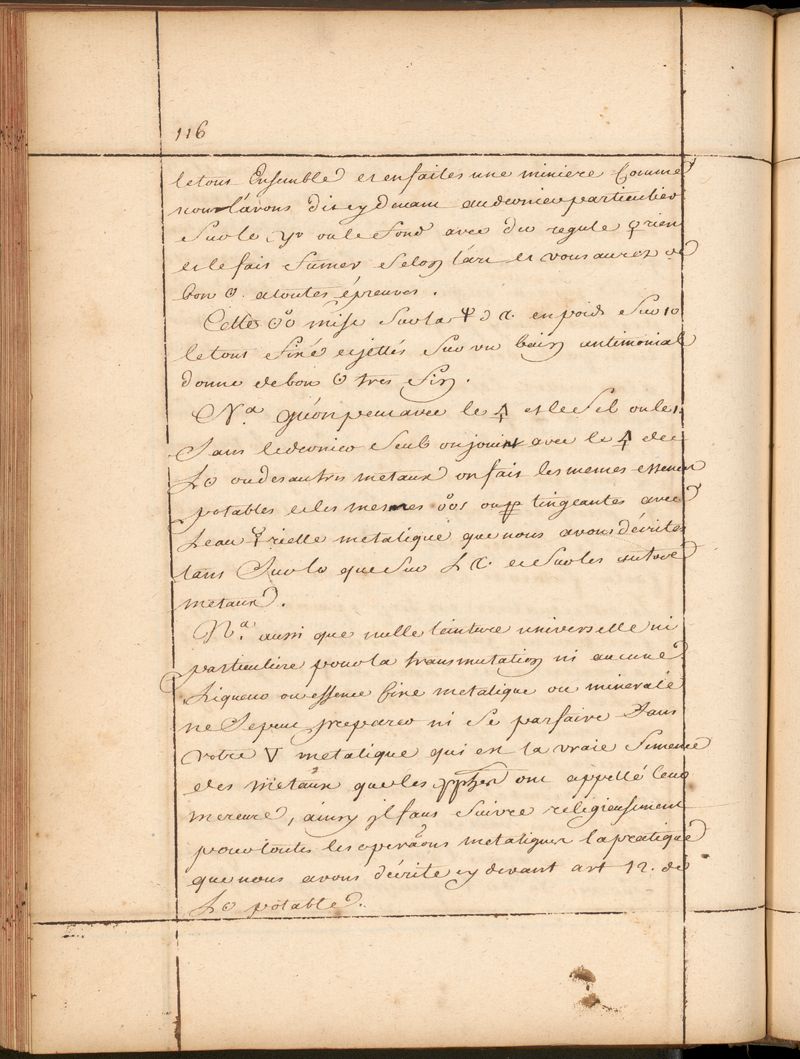 116
le tout Ensemble et en faites une miniere Comme
nous l'avons dit cy devant au dernier particulier
Sur le ou le fond avec du regule ♀rien
et le fait fumer Selon l'art et vous aurez de
bon ☉. a toutes épreuves.
Cette mise Sur la de en poids Sur 10
le tout fixé et jettés Sur un bain antimonial
donne de bon ☉ tres fin.
N.a qu'on peut avec le 🜍 et le Sel ou le
Sans le Seul ou joint avec le 🜍 de
L☉ ou des autres metaux on fait les memes essences
potables et les mesmes ou tingeantes avec
Leau ☿rielle metalique que nous avons décrites
tant Sur le que Sur L et Sur les autres
metaux.
N.a aussi que nulle teinture universelle ni
particuliere pour la transmutation ni aucune
Liqueur ou essence fixe metalique ou minerale
ne Se peut preparer ni Se parfaire Sans
votre ▽ metalique qui est la vraie Semence
des metaux que les pphes ont appellé leur
mercure, ainsy il faut Suivre religieusement
pour toutes les operãons metaliques la pratique
que nous avons décrite cy devant art 12. de
L☉ potable.